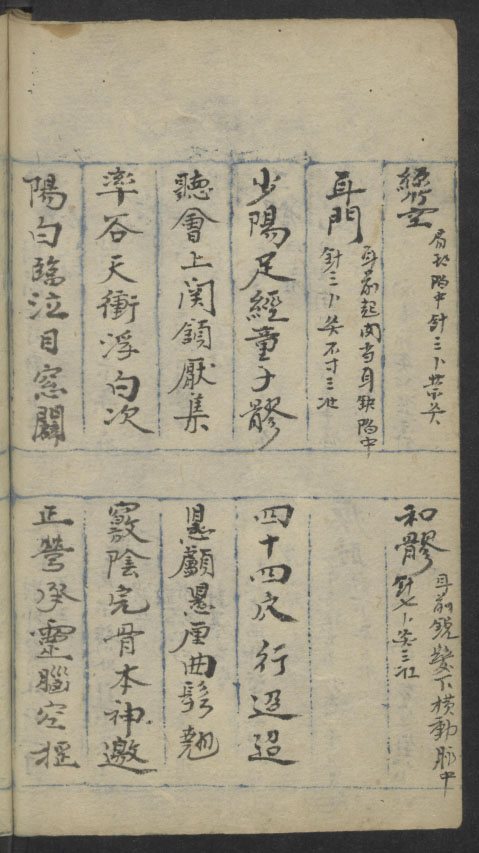 絲竹空
眉後陷中針三卜禁灸
耳門
耳前起肉当耳缺陷中
針三卜灸不寸三壯
少陽足經童子髎
聽會上関頷厭集
率谷天衝浮白次
陽白臨泣目窓闢
和髎
耳前銳髮下横動脉中
針七卜灸三壯
四十四穴行迢迢
懸顱懸厘曲鬂翹
竅陰完骨本神邀
正营承靈腦空摇